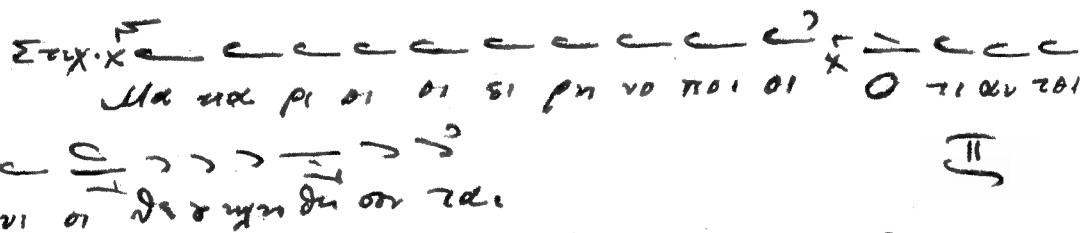 Στιχ.
Μα κα ρι οι οι ει ρη νο ποι οι Ο τι αυ τοι
υι οι Θε ȣ κλη θη σον ται.